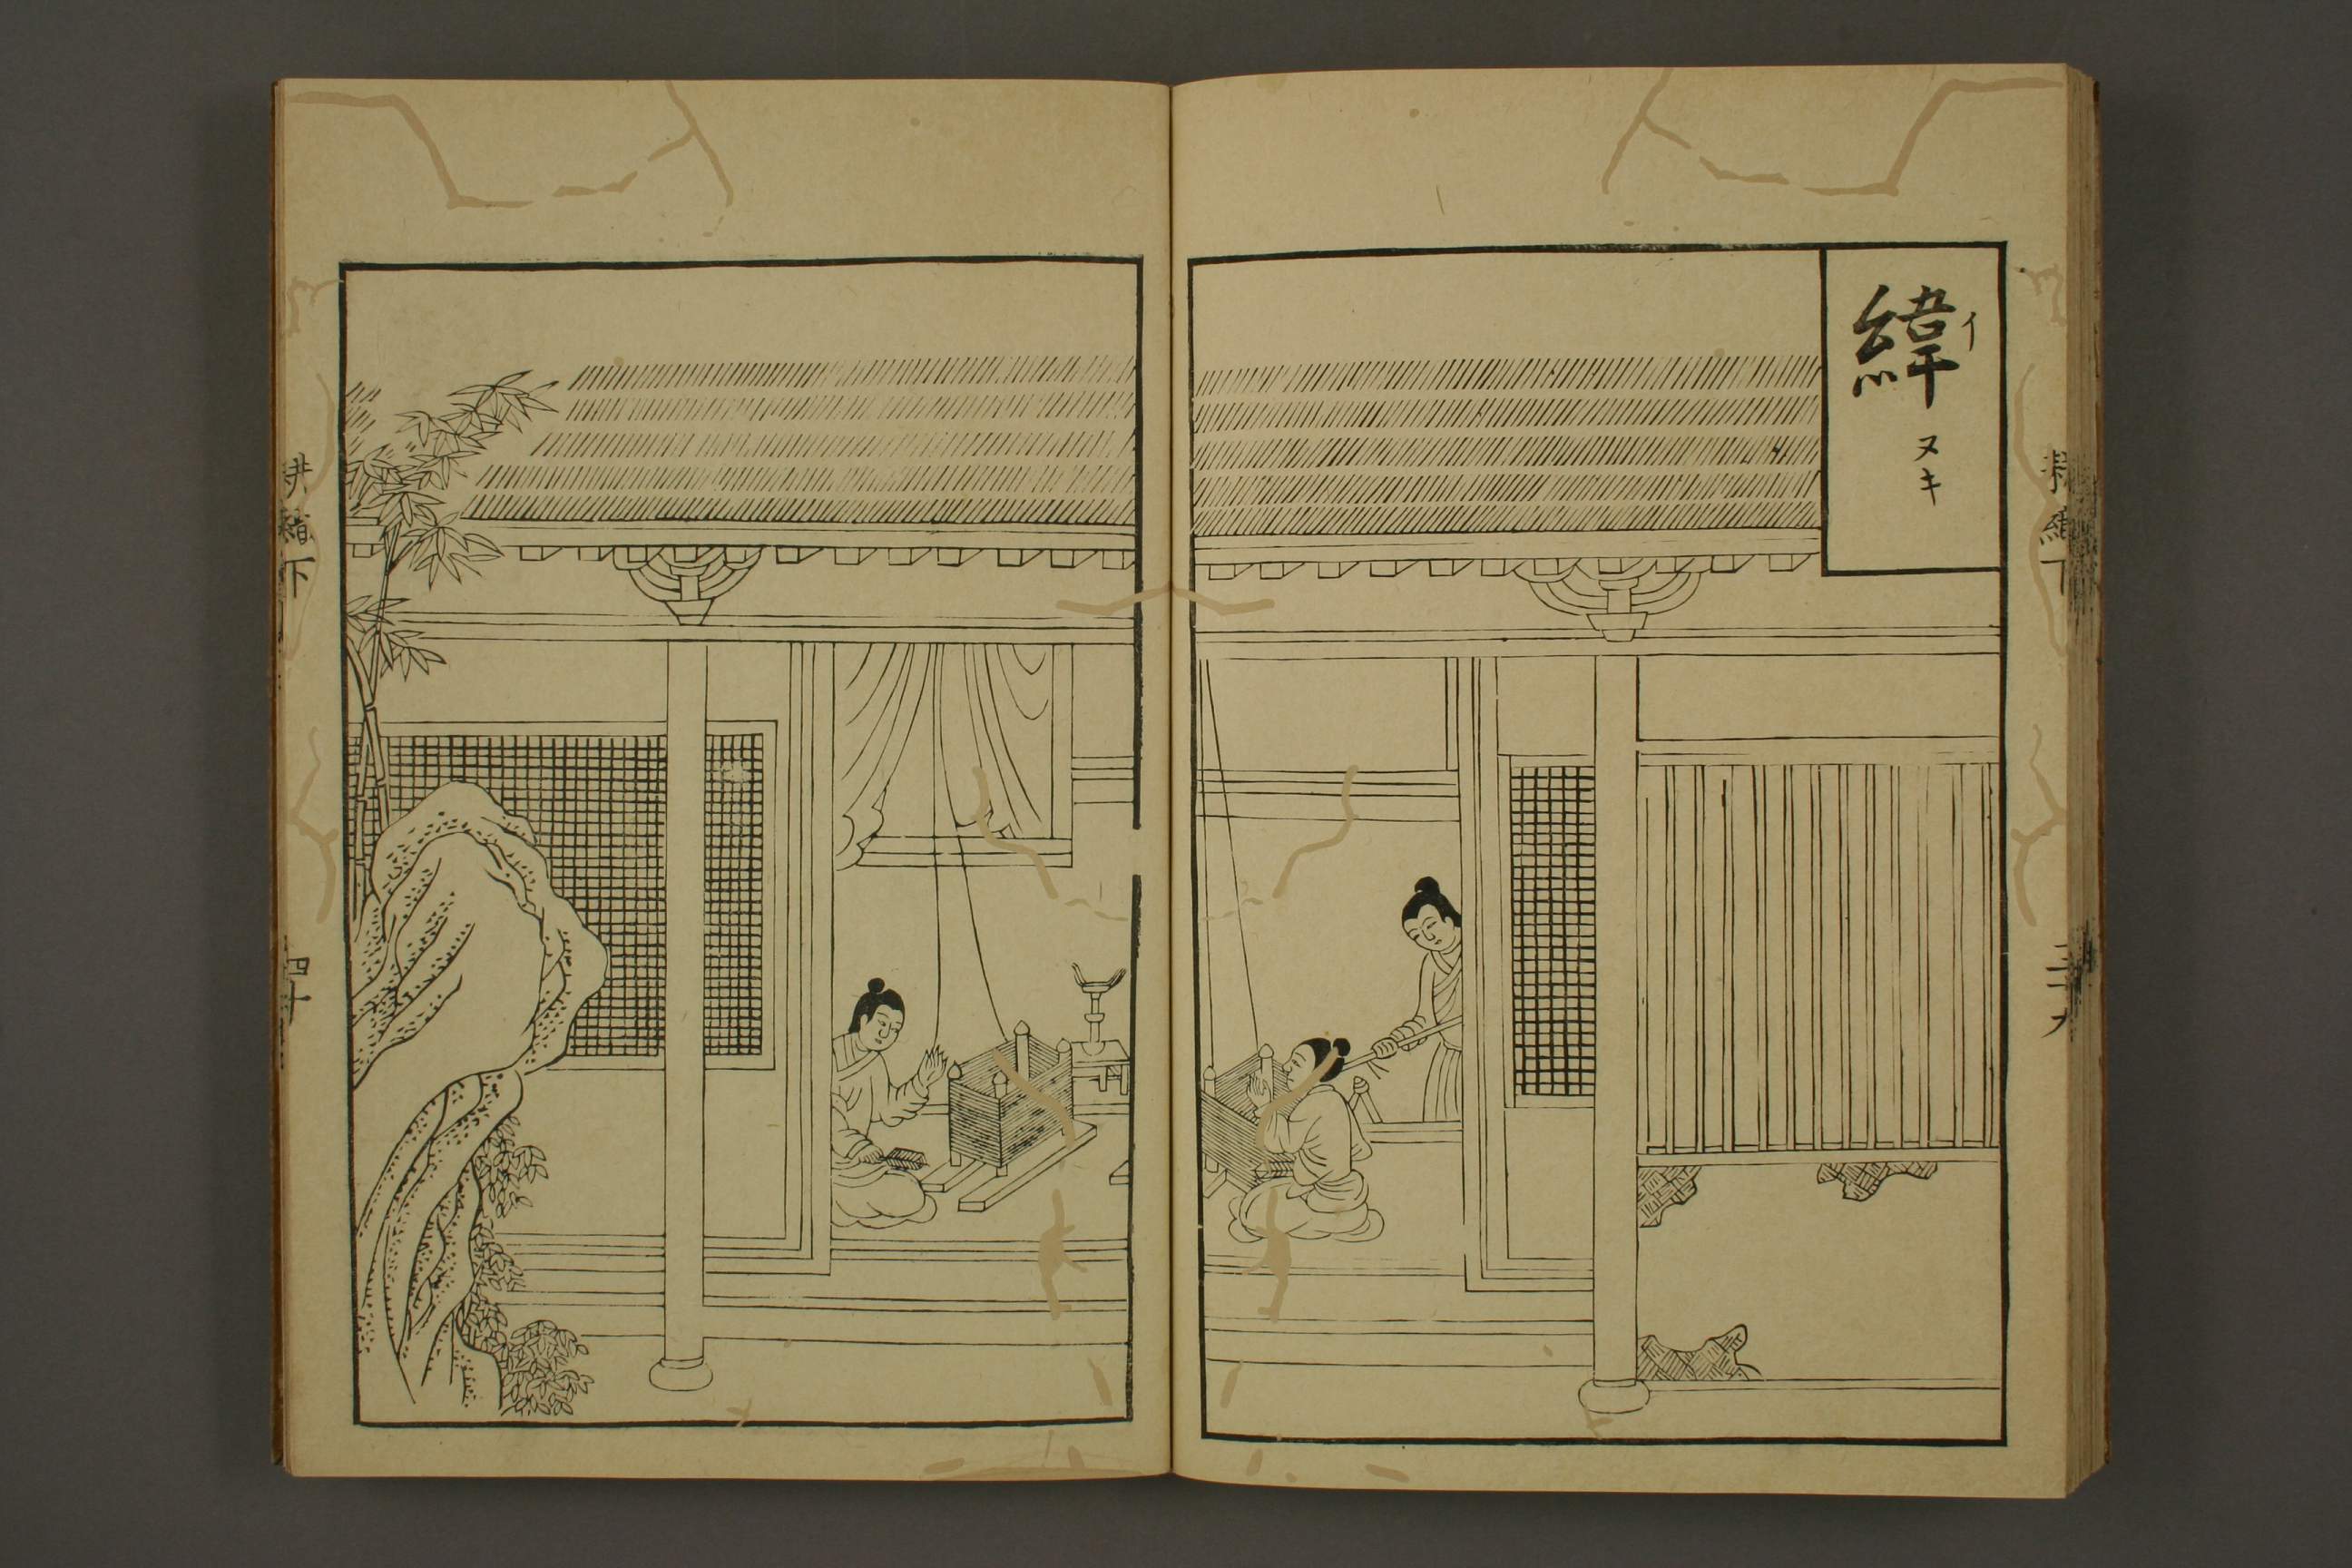 緯
イ
ヌキ
耕織下
三十九
耕織下
四十